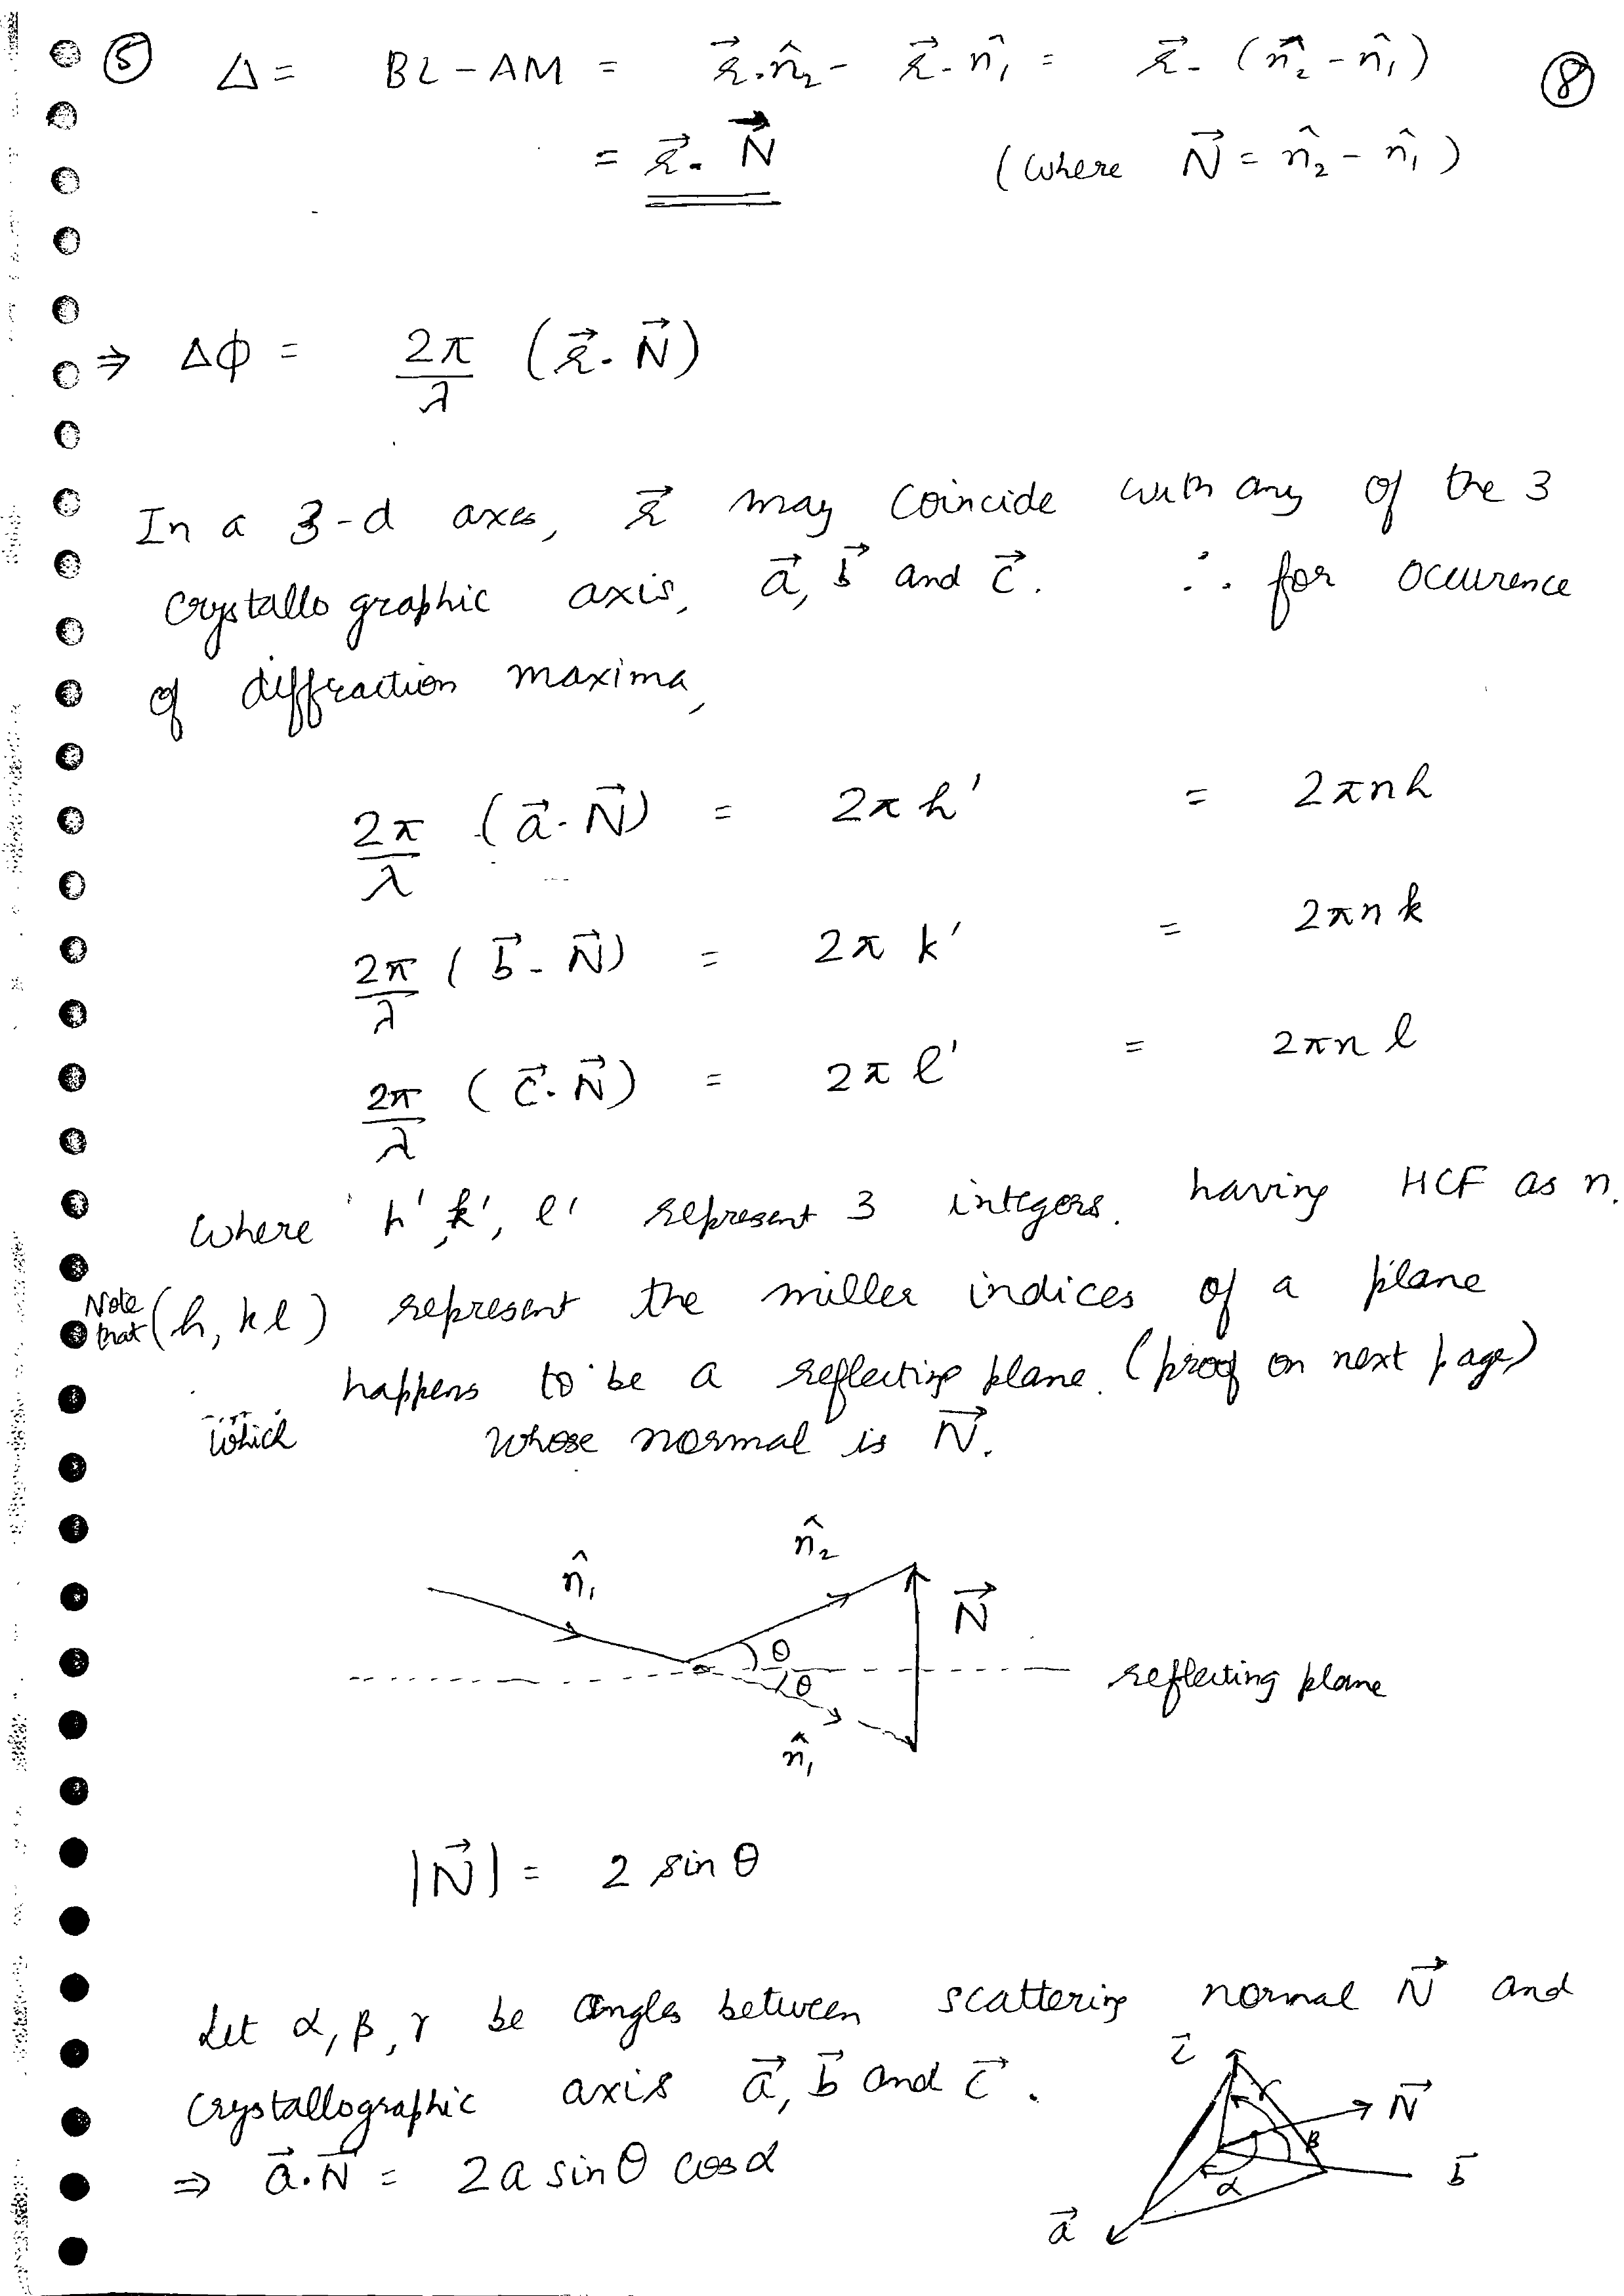 ⑤ Δ = BL - AM = r⃗.n̂₂ - r⃗.n̂₁ = r⃗. (n̂₂ - n̂₁) ⑧
= r⃗. N⃗ (where N⃗ = n̂₂ - n̂₁)
⇒ Δϕ = 2π/λ (r⃗. N⃗)
In a 3-d axes, r⃗ may coincide with any of the 3
crystallographic axis, a⃗, b⃗ and c⃗. ∴ for occurence
of diffraction maxima,
2π/λ (a⃗. N⃗) = 2πh' = 2πnh
2π/λ (b⃗. N⃗) = 2πk' = 2πnk
2π/λ (c⃗. N⃗) = 2πl' = 2πnl
Where h', k', l' represent 3 integers. having HCF as n.
Note that (h, kl) represent the miller indices of a plane
happens to be a reflecting plane. (proof on next page)
which whose normal is N⃗.
n̂₂
n̂₁
N⃗
θ
θ
reflecting plane
n̂₁
|N⃗| = 2 sin θ
Let α, β, γ be angles between scattering normal N⃗ and
crystallographic axis a⃗, b⃗ and c⃗.
⇒ a⃗.N⃗ = 2a sinθ cosα
c⃗
γ
N⃗
β
b⃗
α
a⃗